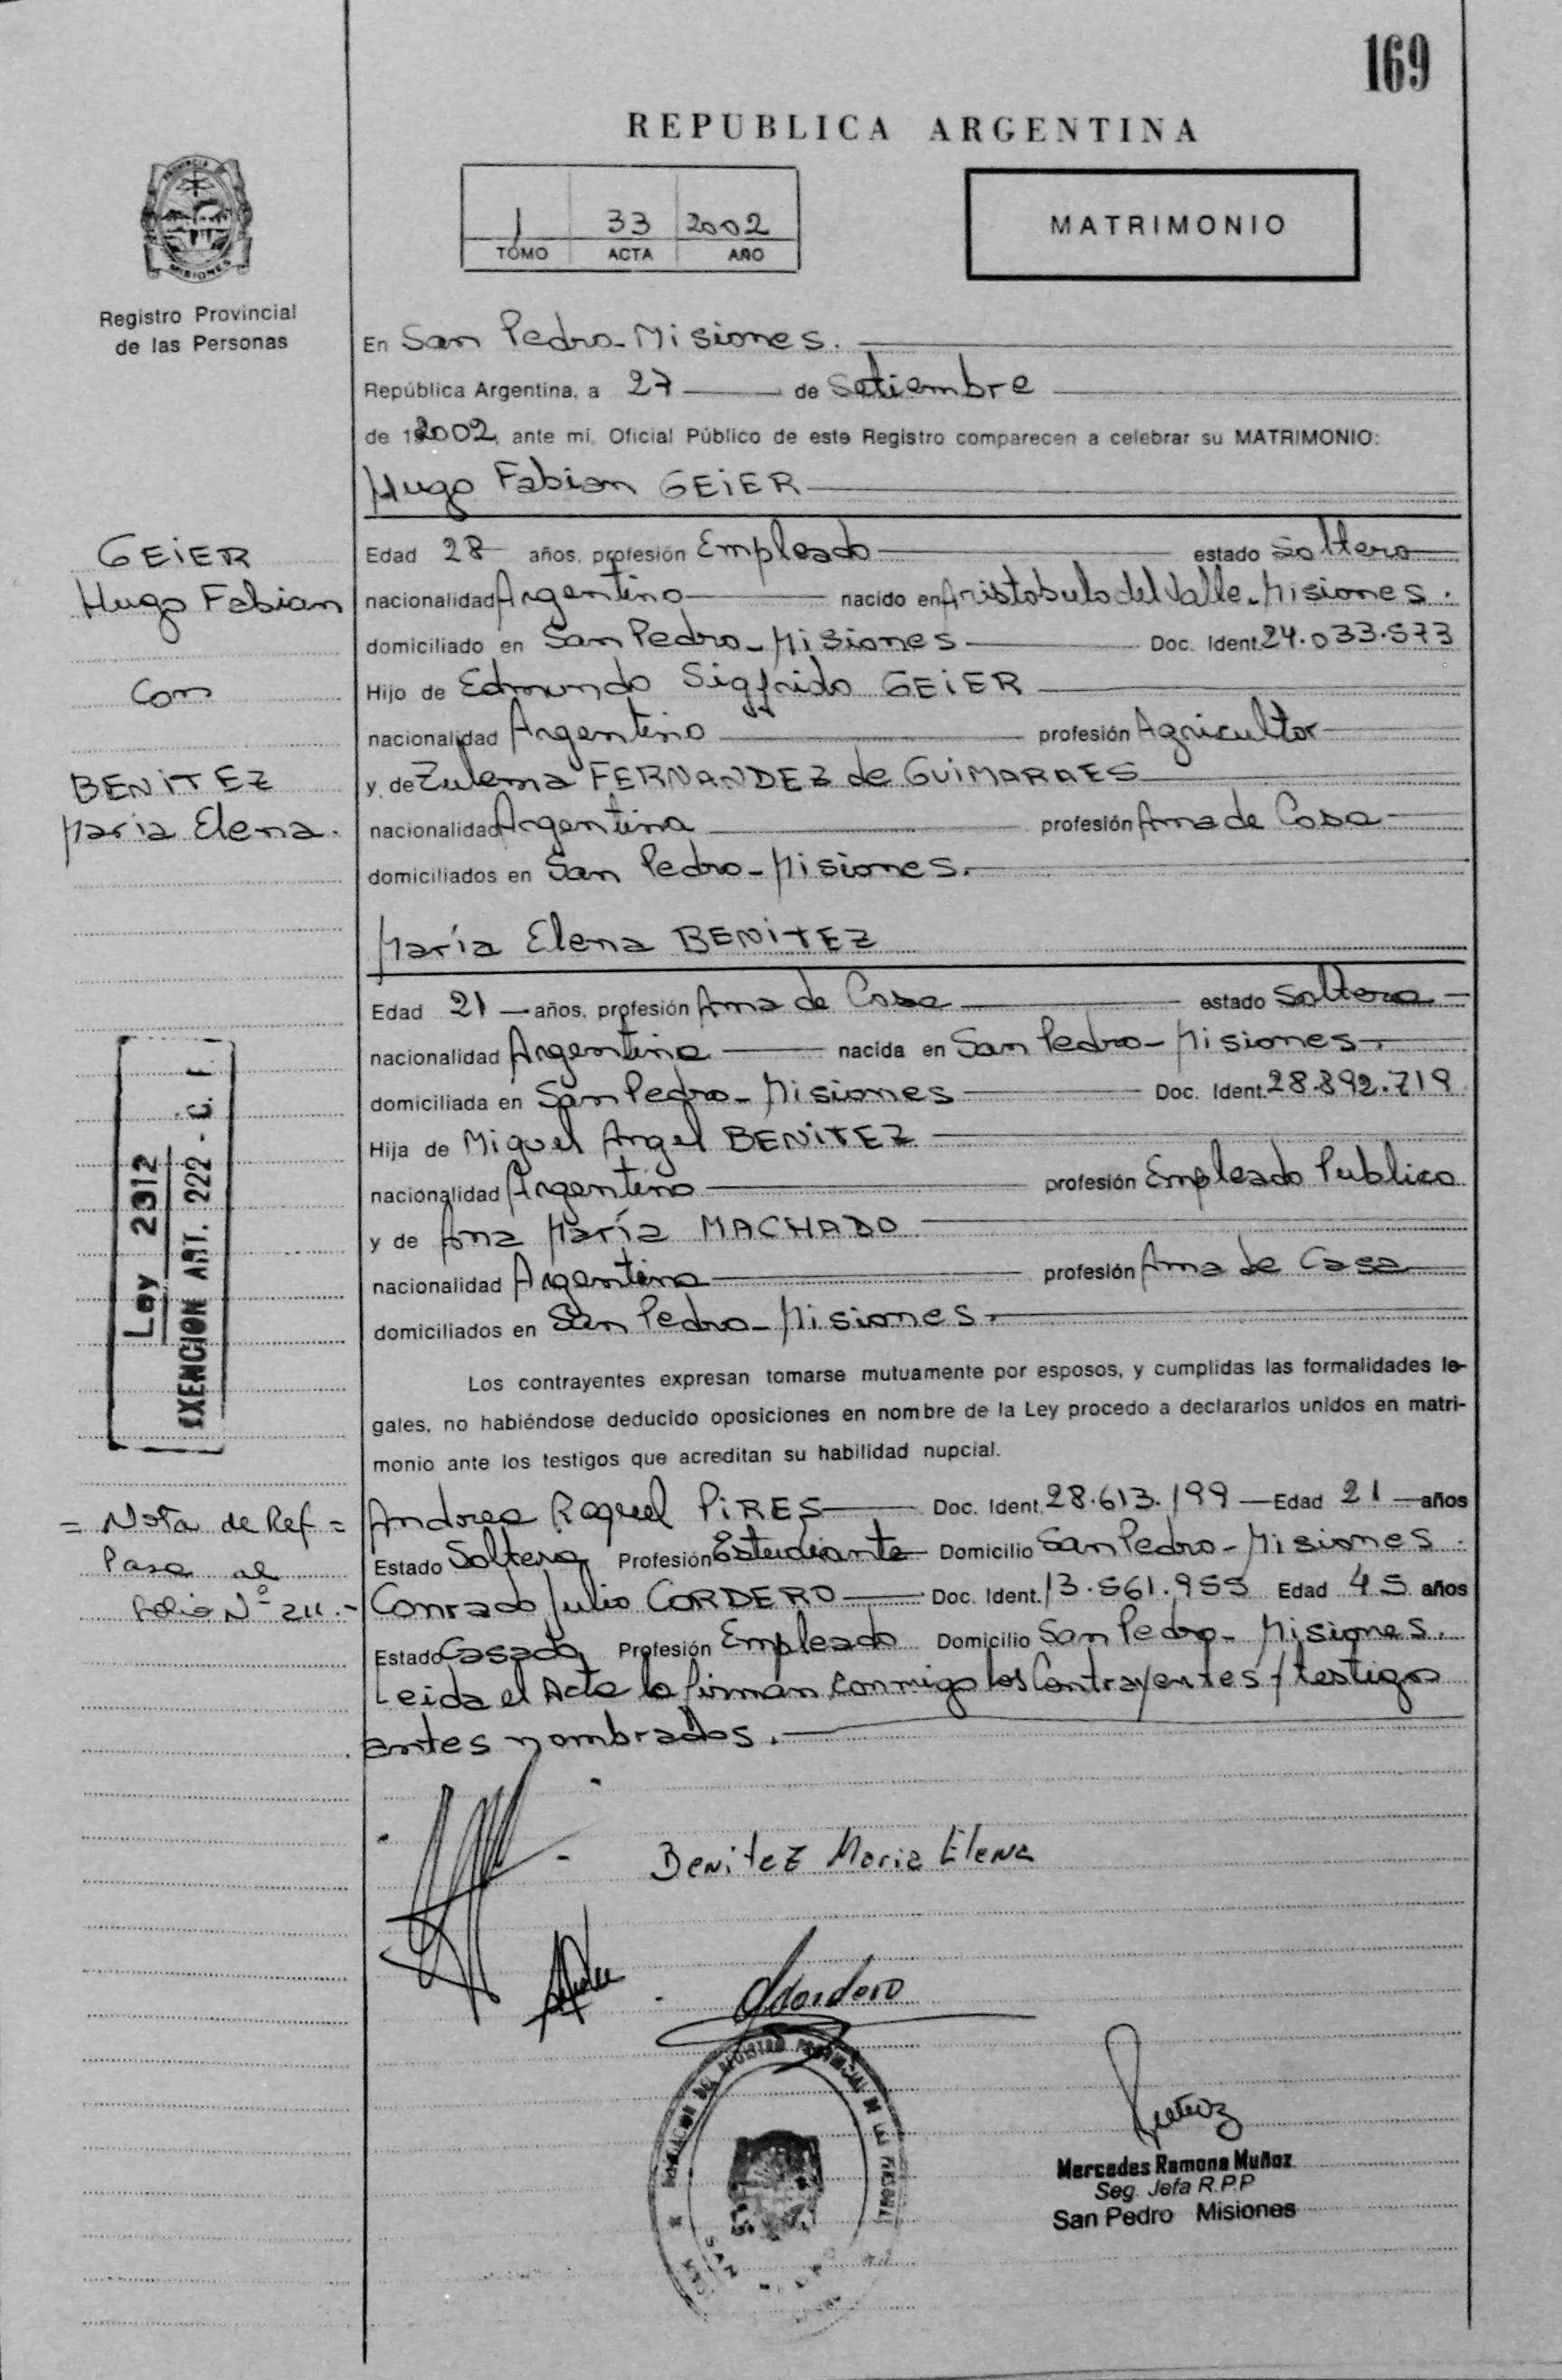 169
REPUBLICA ARGENTINA
1 33 2002
TOMO ACTA AÑO
MATRIMONIO
PROVINCIA
MISIONES
Registro Provincial
de las Personas
En San Pedro - Misiones.
República Argentina, a 27 de Setiembre
de 2002, ante mí, Oficial Público de este Registro comparecen a celebrar su MATRIMONIO:
Hugo Fabian GEiER
GEiER
Hugo Fabian
Con
BENiTEZ
Maria Elena.
Edad 28 años, profesión Empleado estado Soltero
nacionalidad Argentino nacido en Aristobulo del Valle - Misiones.
domiciliado en San Pedro - Misiones Doc. Ident. 24.033.573
Hijo de Edmundo Sigfrido GEiER
nacionalidad Argentino profesión Agricultor
y de Zulema FERNANDEZ de GUiMARAES
nacionalidad Argentina profesión Ama de Casa
domiciliados en San Pedro - Misiones.
María Elena BENiTEZ
Edad 21 años, profesión Ama de Casa estado Soltera
nacionalidad Argentina nacida en San Pedro - Misiones.
domiciliada en San Pedro - Misiones Doc. Ident. 28.892.719
Hija de Miguel Angel BENiTEZ
nacionalidad Argentino profesión Empleado Publico
y de Ana María MACHADO
nacionalidad Argentina profesión Ama de Casa
domiciliados en San Pedro - Misiones.
Ley 2312
EXENCION ART. 222 - C. F.
Los contrayentes expresan tomarse mutuamente por esposos, y cumplidas las formalidades le-
gales, no habiéndose deducido oposiciones en nombre de la Ley procedo a declararlos unidos en matri-
monio ante los testigos que acreditan su habilidad nupcial.
= Nota de Ref =
Pasa al
folio Nº 211.-
Andrea Raquel PiRES Doc. Ident. 28.613.199 Edad 21 años
Estado Soltera Profesión Estudiante Domicilio San Pedro - Misiones.
Conrado Julio CORDERO Doc. Ident. 13.561.955 Edad 45 años
Estado Casado Profesión Empleado Domicilio San Pedro - Misiones.
Leida el Acta la firman conmigo los Contrayentes y testigos
antes nombrados.
Benitez Maria Elena
Cordero
DEL REGISTRO PROVINCIAL DE LAS PERSONAS
Mercedes Ramona Muñoz
Seg. Jefa R.P.P
San Pedro Misiones